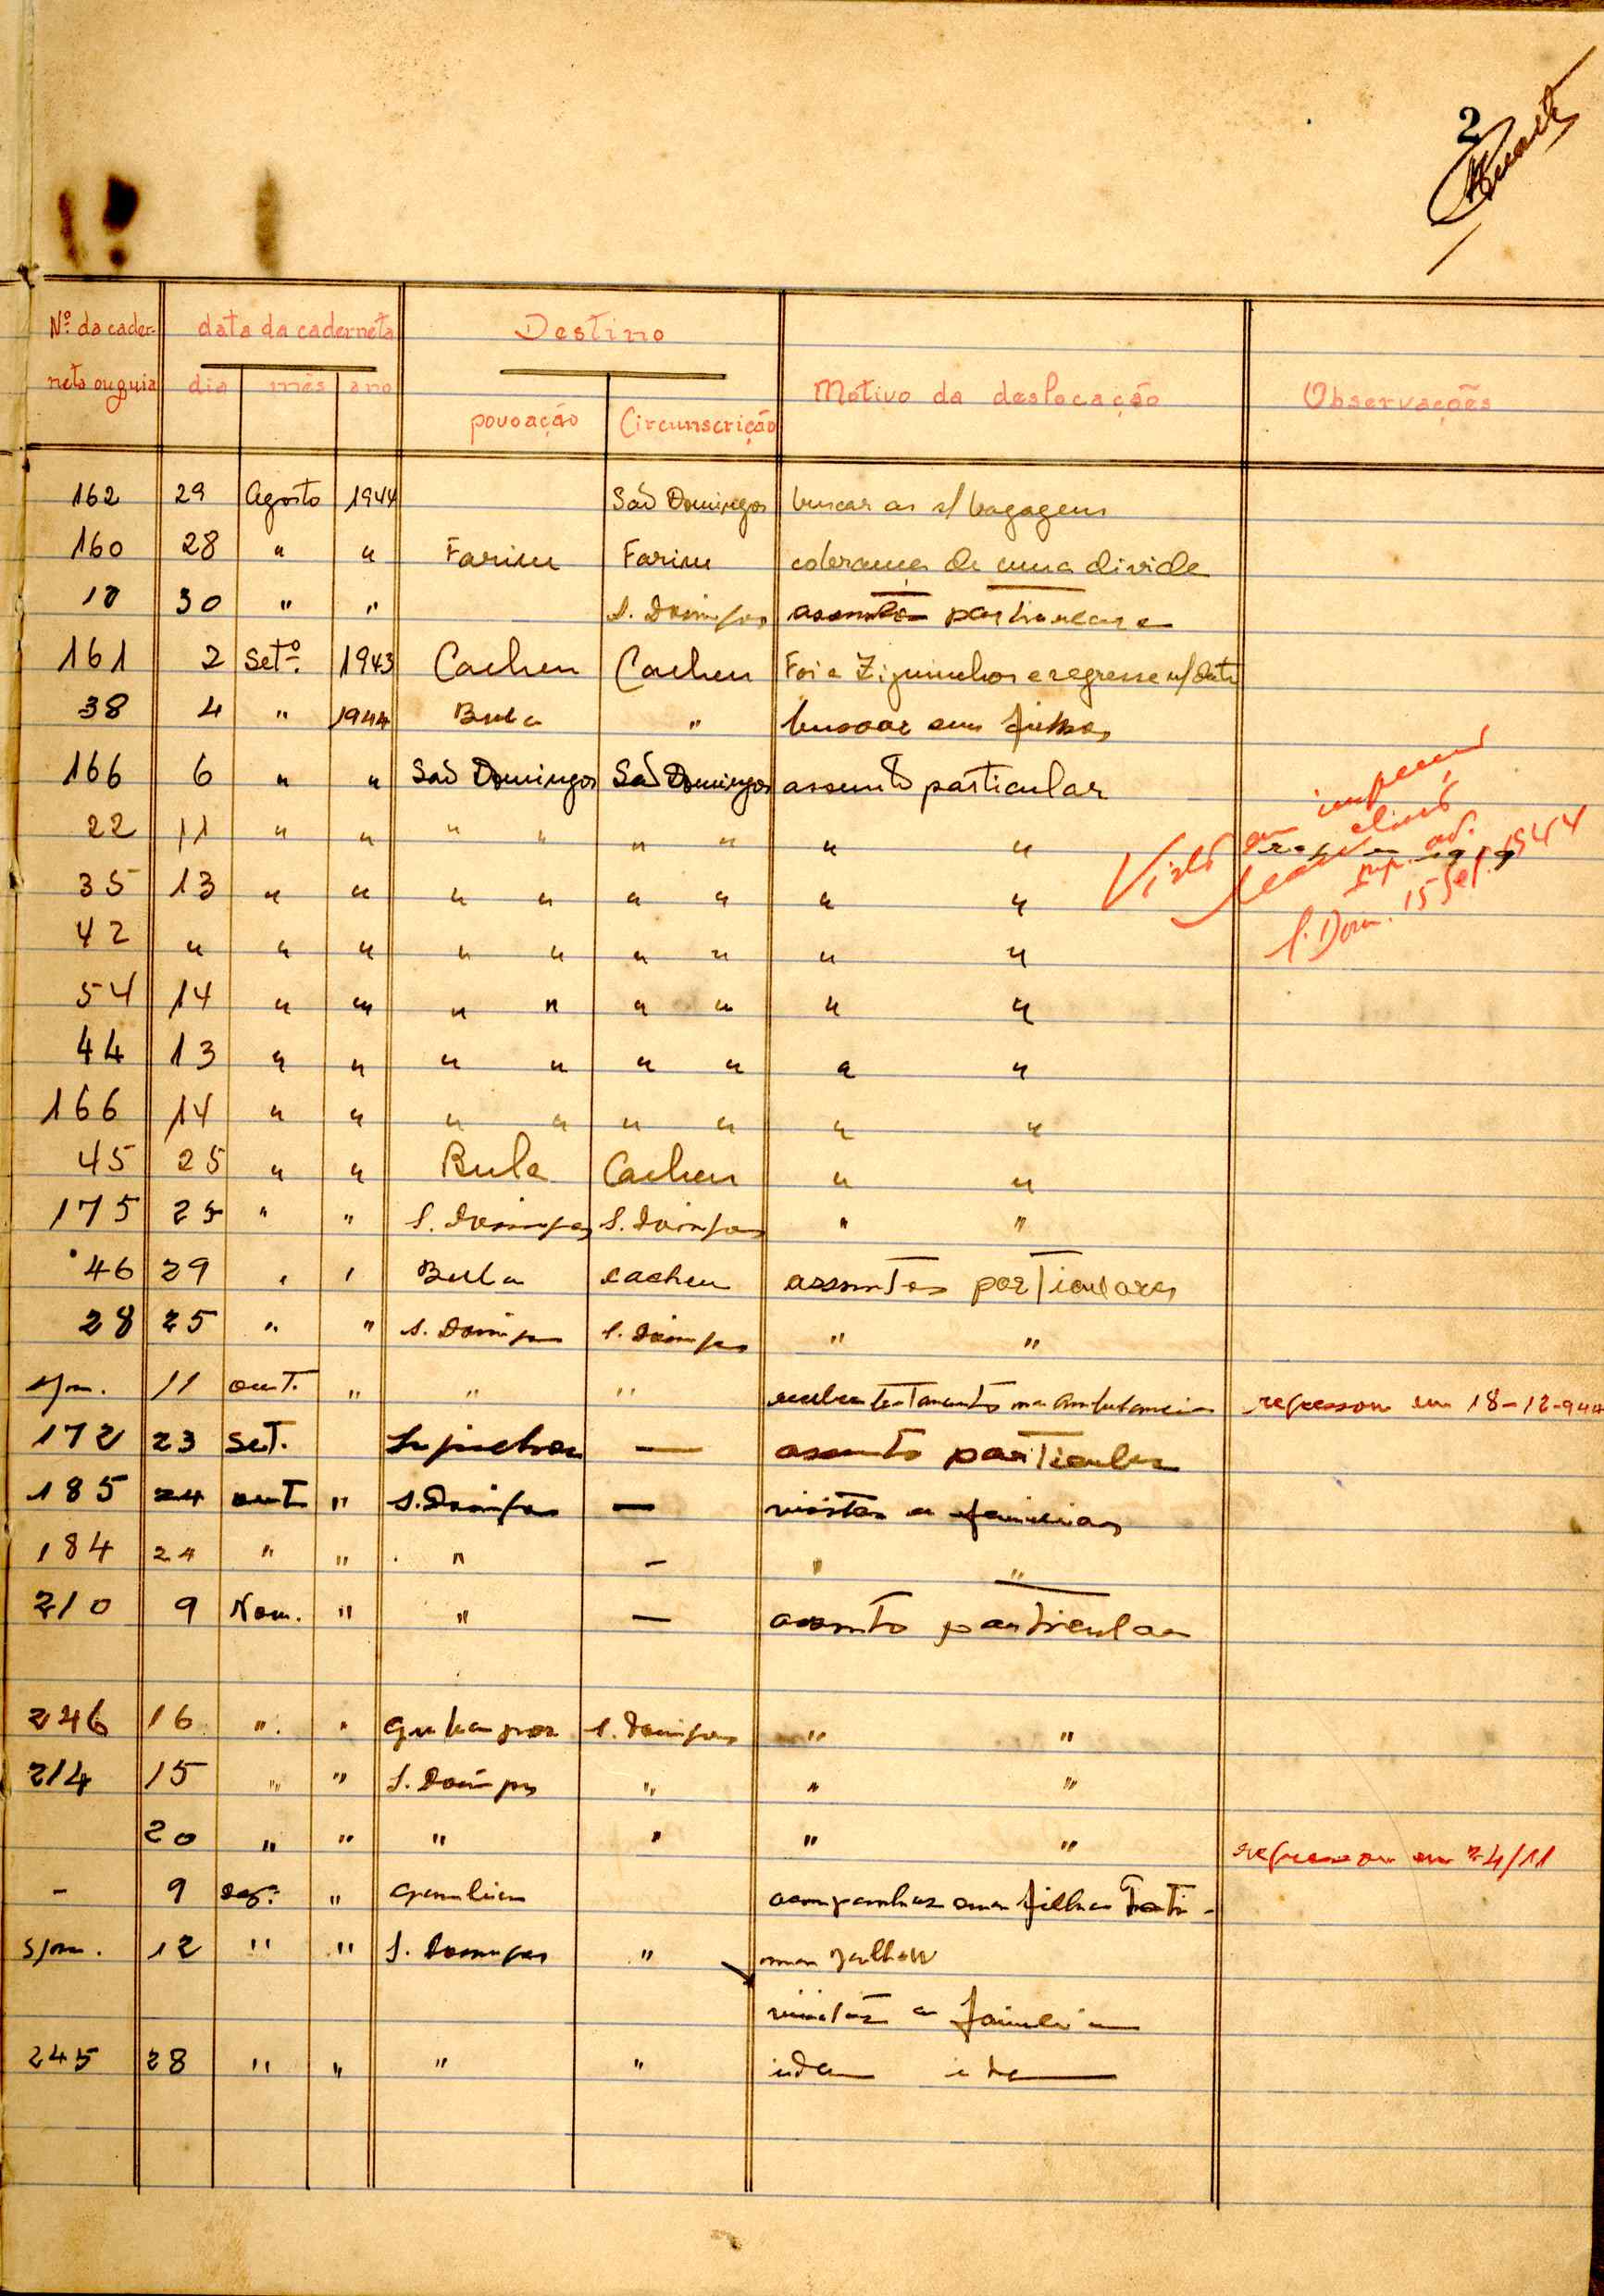 2
Nº da cader- data da caderneta Destino
neta ou guia dia mês ano Motivo da deslocação Observações
povoação Circunscrição
162 29 Agosto 1944 São Domingos buscar as s/ bagagens
160 28 " " Farim Farim cobrança de uma divida
30 " " S. Domingos assuntos particulares
161 2 Setº. 1943 Cacheu Cacheu Foi a Ziguinchor e regresse n/data
38 4 " 1944 Bula " buscar seus filhos
166 6 " " São Domingos São Domingos assunto particular
22 11 " " " " " " " "
Visto em
S. Dom. 15 Set. 1944
35 13 " " " " " " " "
42 " " " " " " " " "
54 14 " " " " " " " "
44 13 " " " " " " " "
166 14 " " " " " " " "
45 25 " " Bula Cacheu " "
175 25 " " S. Domingos S. Domingos " "
46 29 " " Bula cacheu assuntos particulares
28 25 " " S. Domingos S. Domingos " "
s/n. 11 out. " " " receber tratamento na ambulancia regressou em 18-12-944
172 23 Set. — assunto particular
185 24 out " S. Domingos — visitar a familia
184 24 " " " — " "
210 9 Nov. " " — assunto particular
246 16 " " S. Domingos " "
214 15 " " S. Domingos " " "
20 " " " " " " regressou em 24/11
- 9 dez. " acompanhar uma filha
s/n. 12 " " S. Domingos "
visitar a familia
245 28 " " " " idem idem